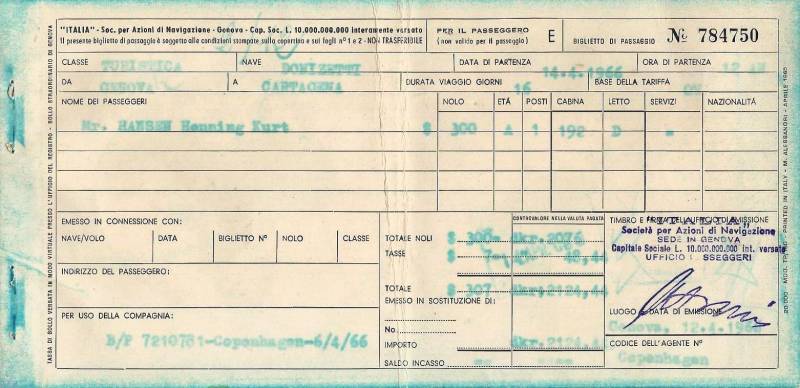 "ITALIA" - Soc. per Azioni di Navigazione - Genova - Cap. Soc. L. 10.000.000.000 interamente versato
Il presente biglietto di passaggio è soggetto alle condizioni stampate sulla copertina e sui fogli n° 1 e 2 - NON TRASFERIBILE
PER IL PASSEGGERO
(non valido per il passaggio)
E
BIGLIETTO DI PASSAGGIO
№ 784750
CLASSE TURISTICA
NAVE DONIZETTI
DATA DI PARTENZA 14.4.1966
ORA DI PARTENZA 12 AM
DA GENOVA
A CARTAGENA
DURATA VIAGGIO GIORNI 16
BASE DELLA TARIFFA
NOME DEI PASSEGGERI NOLO ETÀ POSTI CABINA LETTO SERVIZI NAZIONALITÀ
Mr. HANSEN Henning Kurt $ 300 A 1 192 D =
EMESSO IN CONNESSIONE CON:
NAVE/VOLO DATA BIGLIETTO N° NOLO CLASSE
INDIRIZZO DEL PASSEGGERO:
PER USO DELLA COMPAGNIA:
B/P 7210781-Copenhagen-6/4/66
CONTROVALORE NELLA VALUTA PAGATA
TOTALE NOLI $ 300 Dkr.2076
TASSE $ 7 48,44
TOTALE $ 307 Dkr.2124,44
EMESSO IN SOSTITUZIONE DI:
No.
IMPORTO Dkr.2124,44
SALDO INCASSO
TIMBRO E FIRMA DELL'UFFICIO DI EMISSIONE
"ITALIA"
Società per Azioni di Navigazione
SEDE IN GENOVA
Capitale Sociale L. 10.000.000.000 int. versato
UFFICIO
LUOGO E DATA DI EMISSIONE
Genova, 12.4.1966
CODICE DELL'AGENTE N°
Copenhagen
TASSA DI BOLLO VERSATA IN MODO VIRTUALE PRESSO L'UFFICIO DEL REGISTRO - BOLLO STRAORDINARIO DI GENOVA
PRINTED IN ITALY - M. ALESSANDRI - APRILE 1965